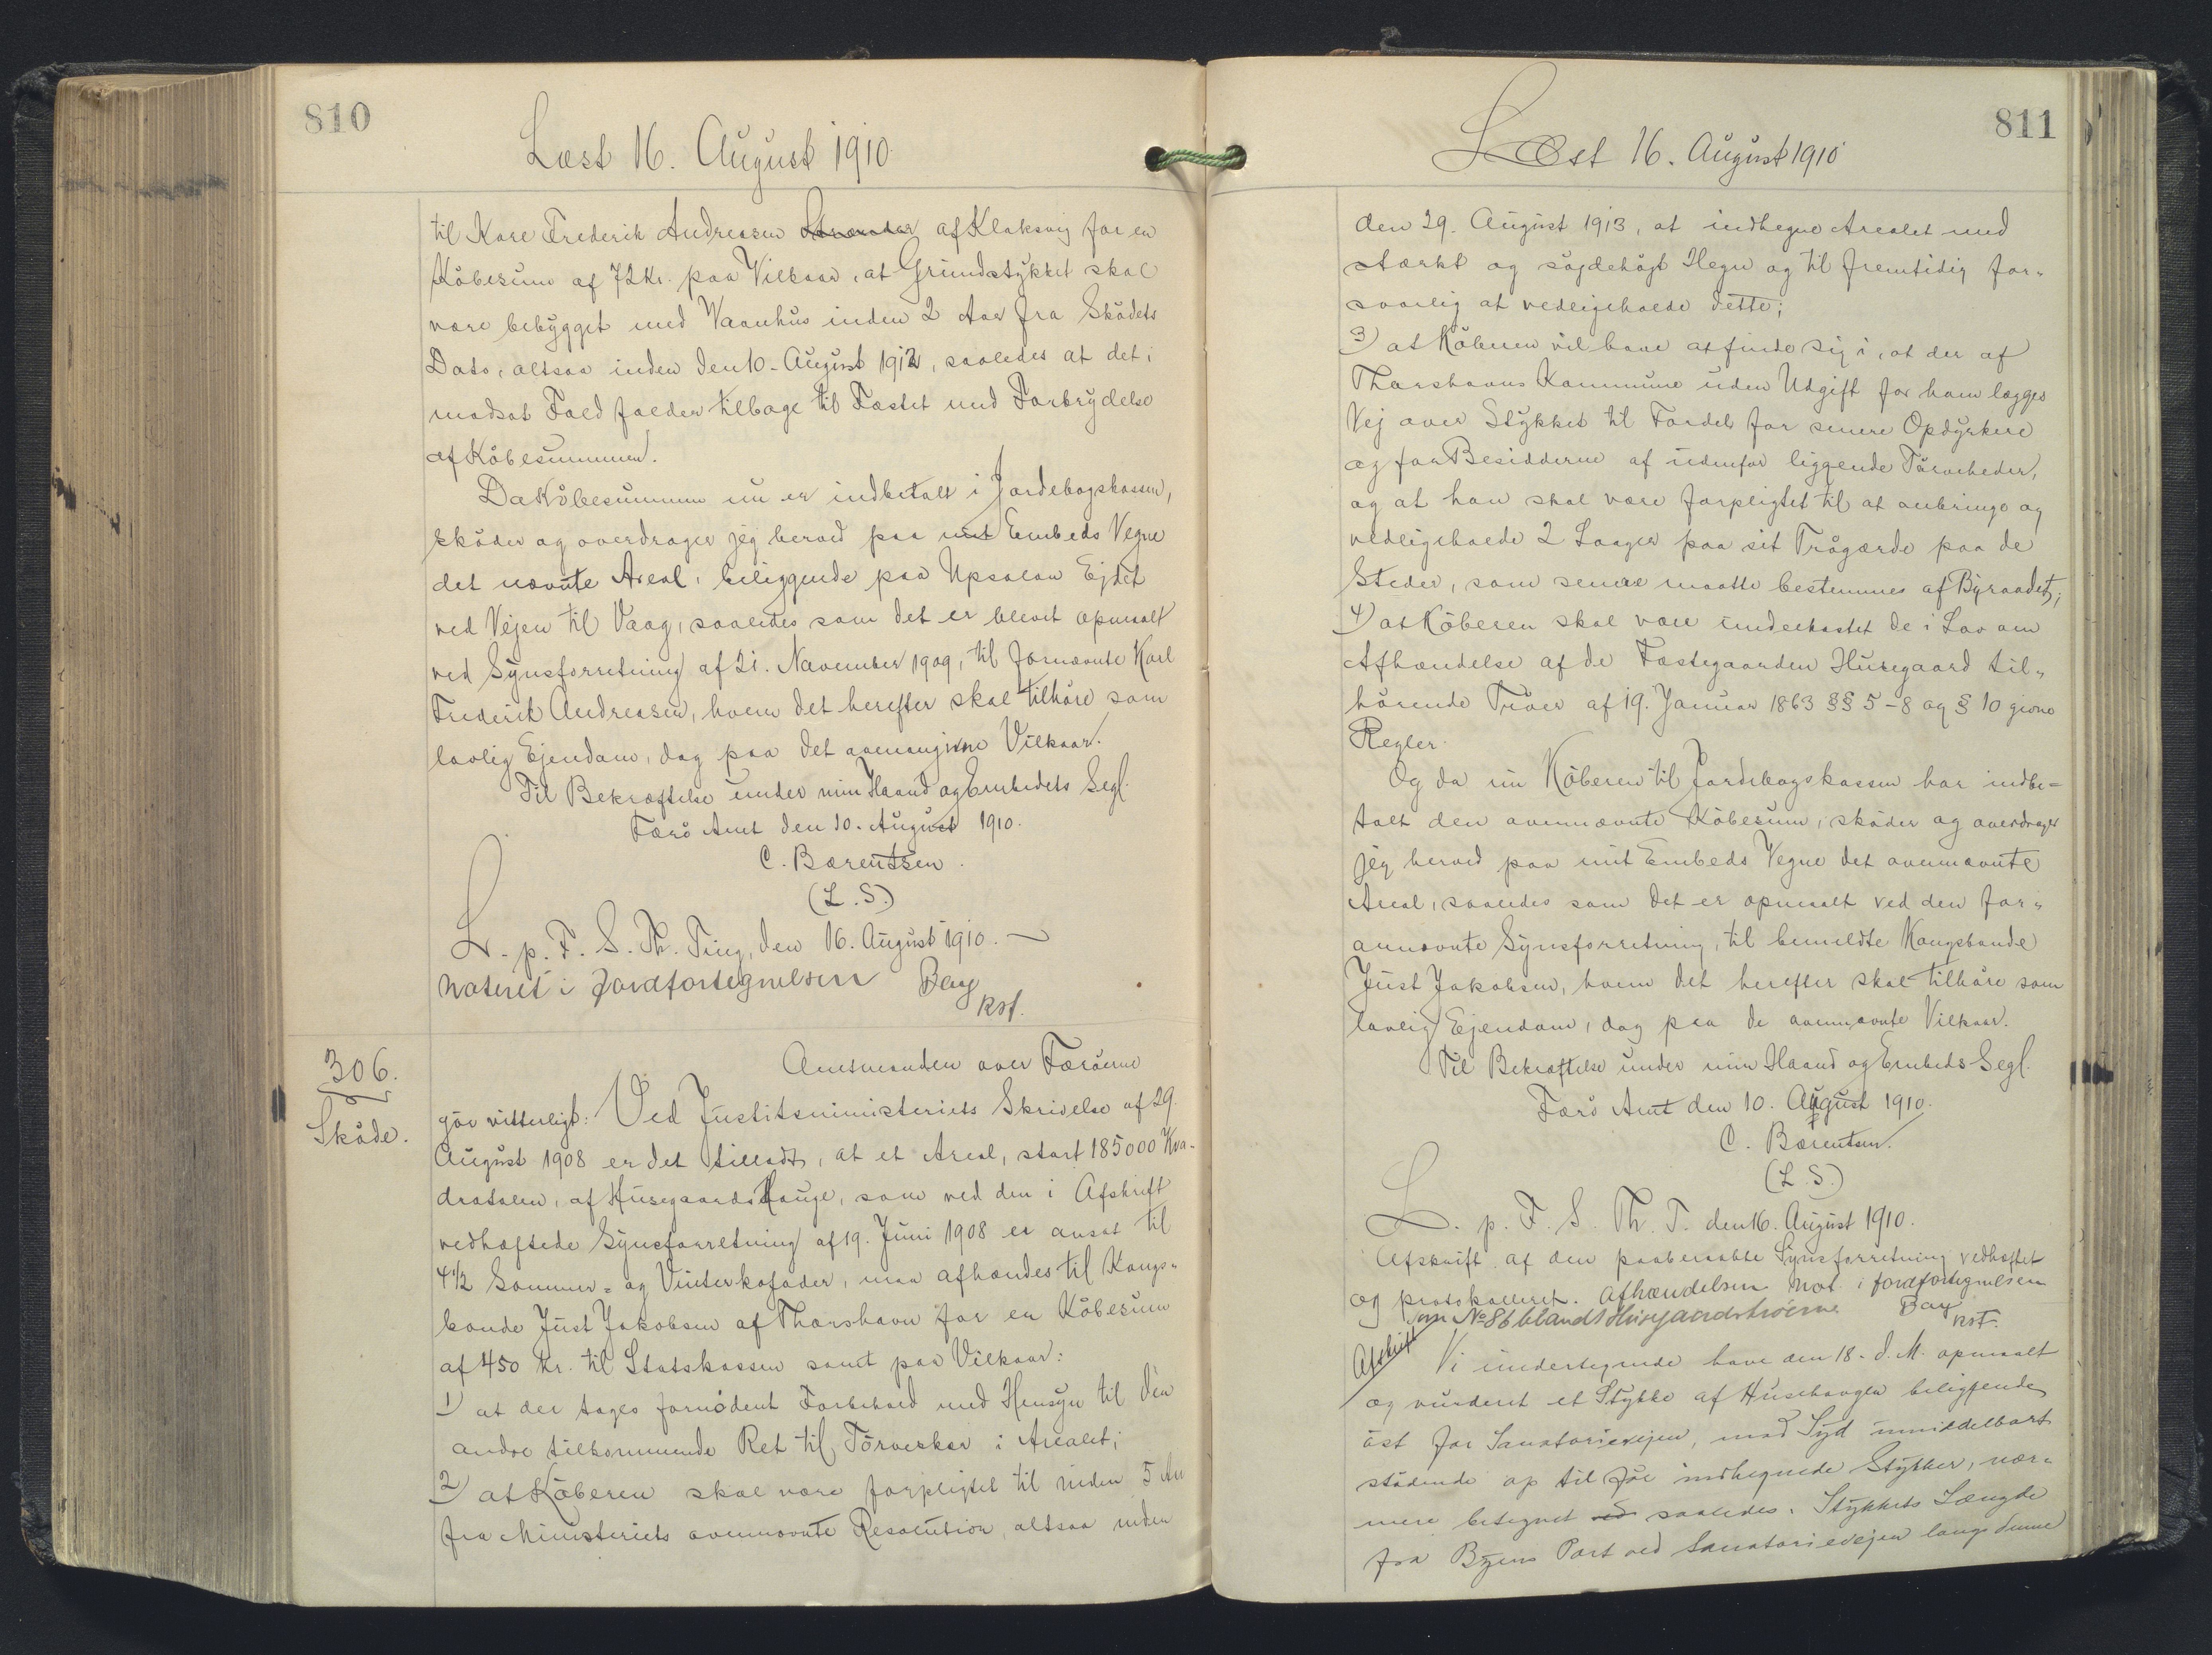 810
Læst 16. August 1910.
til Karl Frederik Andreasen af Klaksvig for en
Köbesum af 72 Kr. paa Vilkaar, at Grundstykket skal
være bebygget med Vaanhus inden 2 Aar fra Sködets
Dato, altsaa inden den 10. August 1912, saaledes at det i
modsat Fald falder tilbage til Fæstet med Fortrydelse
af Köbesummen.
Da Köbesummen nu er indbetalt i Jordebogskassen,
sköder og overdrager jeg herved paa mit Embeds Vegne
det nævnte Areal, beliggende paa Upsalan Ejdet
ved Vejen til Vaag, saaledes som det er blevet opmaalt
ved Synsforretning af 21. November 1909, til fornævnte Karl
Frederik Andreasen, hvem det herefter skal tilhöre som
lovlig Ejendom, dog paa det ovenangivne Vilkaar.
Til Bekræftelse under min Haand og Embedets Segl.
Færö Amt den 10. August 1910.
C. Bærentsen.
(L.S.)
L. p. F. S. Th. Ting, den 16. August 1910. —
Noteret i Jordfortegnelsen Bay
kst.
306.
Sköde.
Amtmanden over Færöerne
gör vitterligt: Ved Justitsministeriets Skrivelse af 29.
August 1908 er det tilladt, at et Areal, stort 185000 Kva-
dratalen, af Husegaards Hauge, som ved den i Afskrift
vedhæftede Synsforretning af 19. Juni 1908 er ansat til
4 1/2 Sommer- og Vinterkofoder, maa afhændes til Kongs-
bonde Just Jakobsen af Thorshavn for en Köbesum
af 450 Kr. til Statskassen samt paa Vilkaar:
1) at der tages fornödent Forbehold med Hensyn til den
andre tilkommende Ret til Törveskær i Arealet;
2) at Köberen skal være forpligtet til inden 5 Aar
fra Ministeriets ovennævnte Resolution, altsaa inden
811
Læst 16. August 1910
den 29. August 1913, at indhegne Arealet med
stærkt og söjdehöjt Hegn og til fremtidig for-
svarlig at vedligeholde dette;
3) at Köberen vil have at finde sig i, at der af
Thorshavns Kommune uden Udgift for ham lægges
Vej over Stykket til Fordel for senere Opdyrkere
og for Besidderne af udenfor liggende Törveheder,
og at han skal være forpligtet til at anbringe og
vedligeholde 2 Laager paa sit Trögærde paa de
Steder, som senere maatte bestemmes af Byraadet;
4) at Köberen skal være underkastet de i Lov om
Afhændelse af de Fæstegaarden Husegaard til-
hörende Tröer af 19. Januar 1863 §§ 5-8 og § 10 givne
Regler.
Og da nu Köberen til Jordebogskassen har indbe-
talt den ovennævnte Köbesum, sköder og overdrager
jeg herved paa mit Embeds Vegne det ovennævnte
Areal, saaledes som det er opmaalt ved den for-
annævnte Synsforretning, til bemeldte Kongsbonde
Just Jakobsen, hvem det herefter skal tilhöre som
lovlig Ejendom, dog paa de ovennævnte Vilkaar.
Til Bekræftelse under min Haand og Embeds Segl.
Færö Amt den 10. August 1910.
C. Bærentsen.
(L.S.)
L. p. F. S. Th. T. den 16. August 1910.
Afskrift af den paaberaabte Synsforretning vedhæftet
og protokolleret. Afhændelsen not. i Jordfortegnelsen
som No 86 blandt Husegaardströerne. Bay
kst.
Afskrift
Vi undertegnede have den 18. d. M. opmaalt
og vurderet et Stykke af Husehaugen beliggende
öst for Sanatorievejen, mod Syd umiddelbart
stödende op til för indhegnede Stykker, nær-
mere betegnet saaledes: Stykkets Længde
fra Byens Port ved Sanatorievejen langs denne